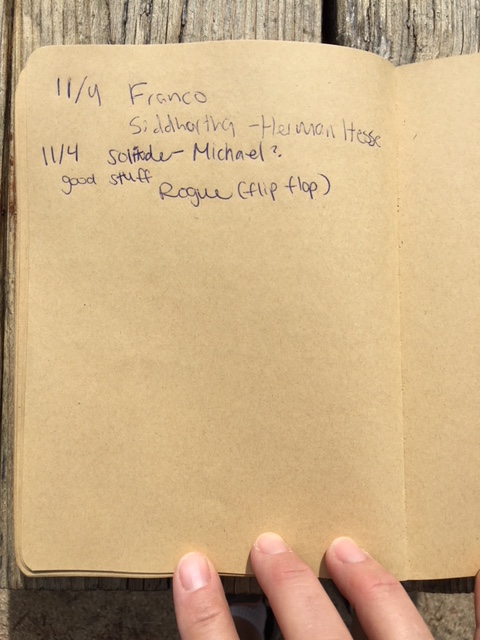 11/4 Franco
Siddhartha - Herman Hesse
11/4 solitude - Michael?
good stuff
Rogue (flip flop)